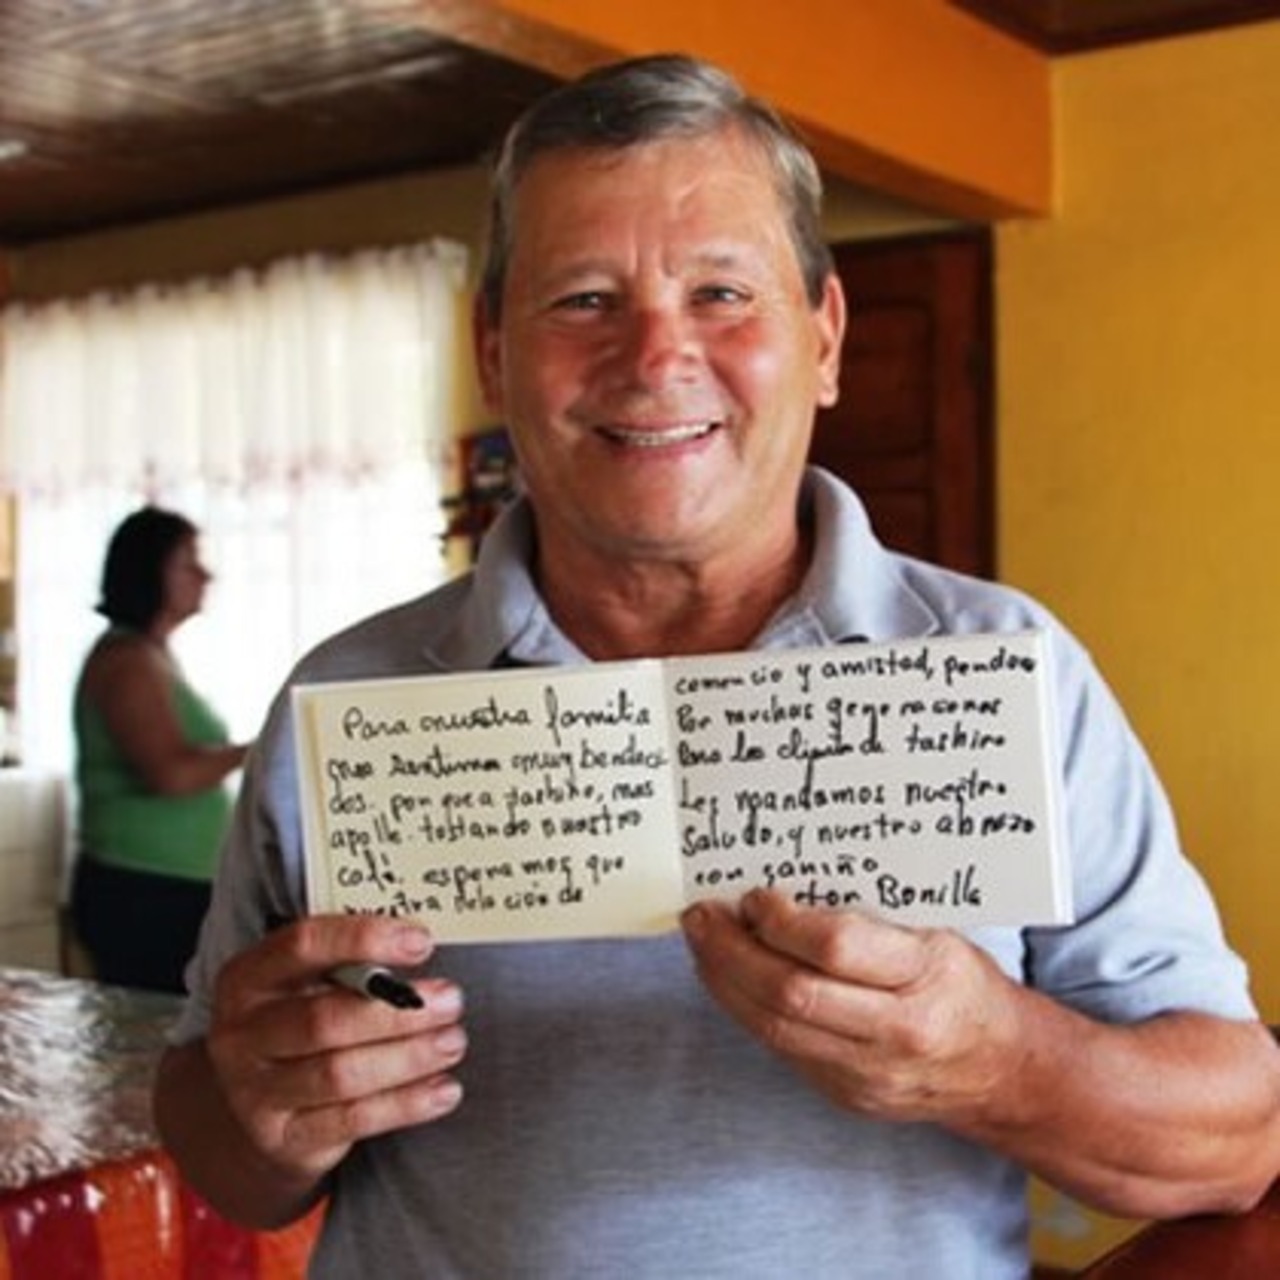 Para nuestra familia
nos sentimos muy bendeci
dos. por que a tashiro, nos
apolle. tostando nuestro
café. esperamos que
nuestra relación de
comercio y amistad, perdore
Por muchas generasones
Para los clientes de tashiro
Les mandamos nuestro
Saludo, y nuestro abrazo
con cariño
Bonilla